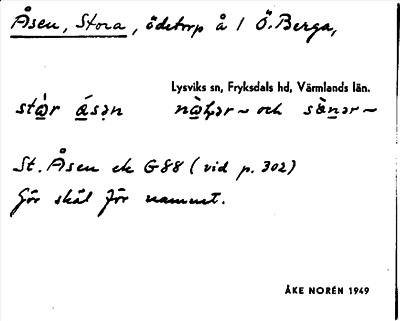 Åsen, Stora, ödetorp å 1 Ö. Berga,
Lysviks sn, Fryksdals hd, Värmlands län.
stàr ásən nàḷər ~ och sènər ~
St. Åsen ek G88 (vid p. 302)
Gör skäl för namnet.
ÅKE NORÉN 1949